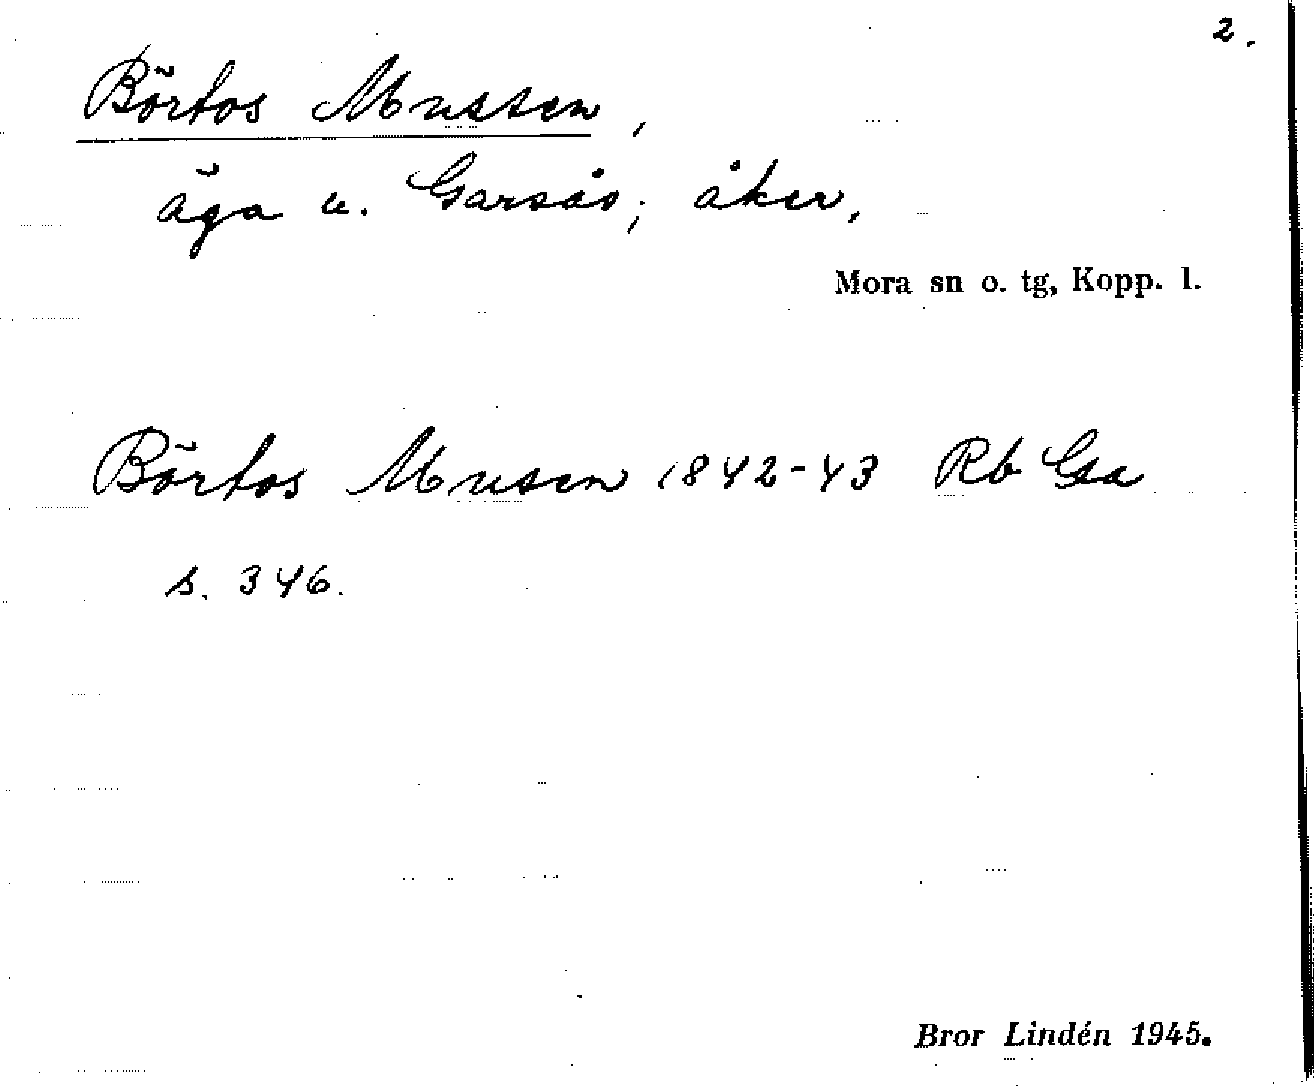 2.
Börtos Mussen,
äga u. Garsås; åker,
Mora sn o. tg, Kopp. l.
Börtos Musen 1842-43 Rb Ga
s. 346.
Bror Lindén 1945.